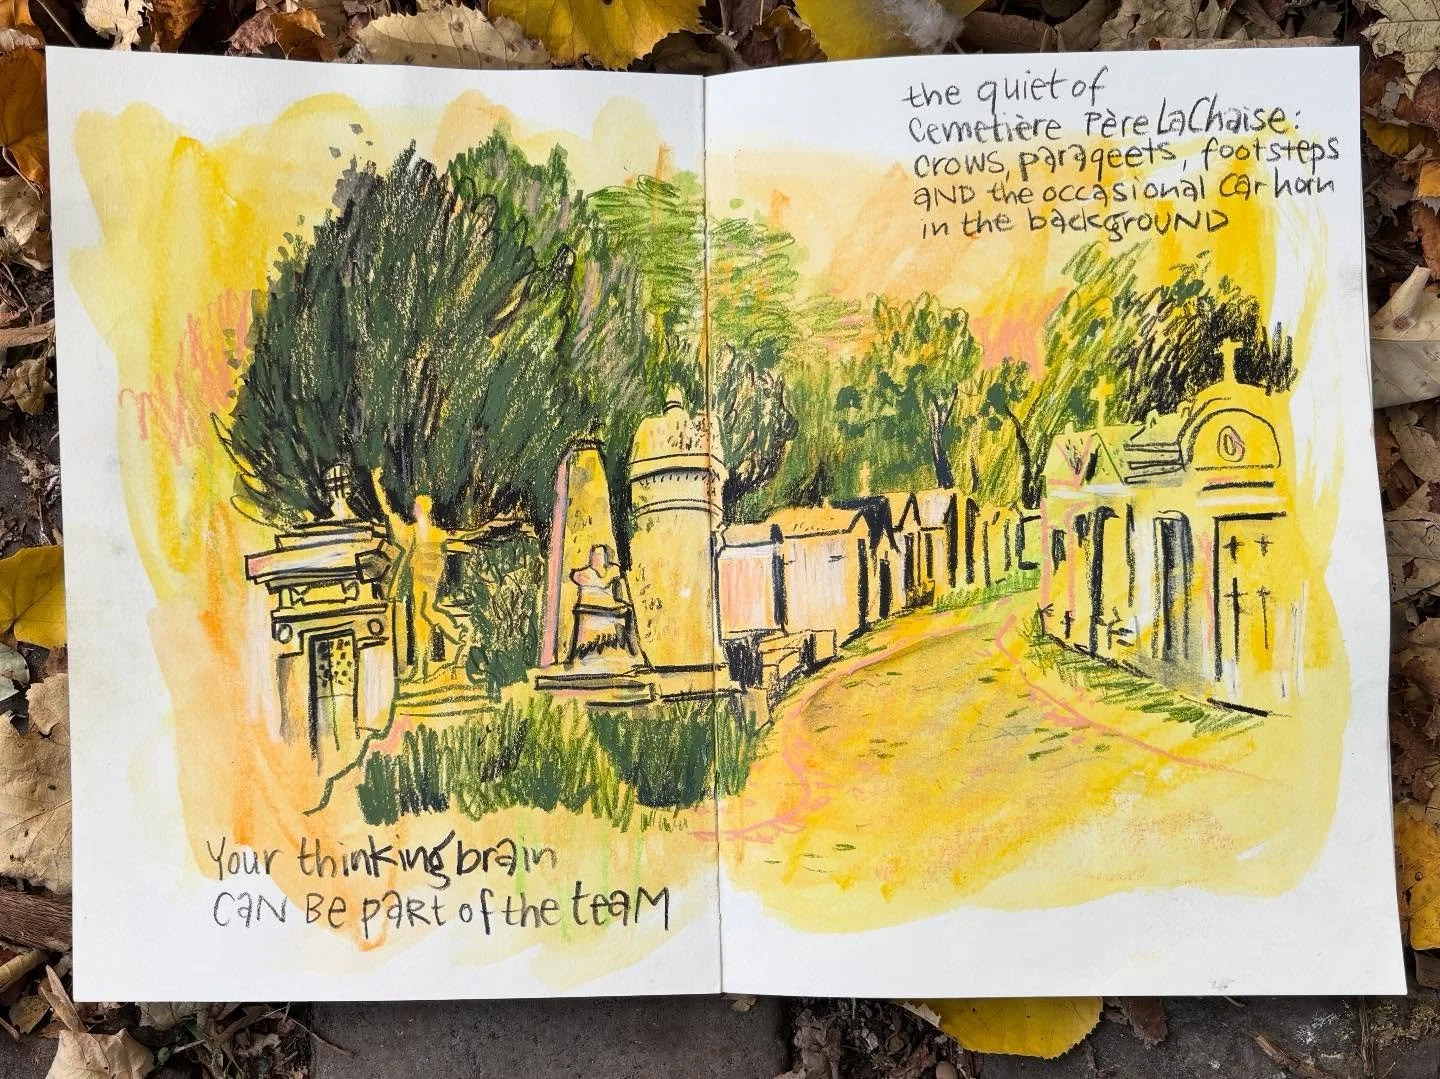 the quiet of
Cemetière Père LaChaise:
crows, paraqeets, footsteps
AND the occasional car horn
in the background
Your thinking brain
CAN BE PART of the teaM